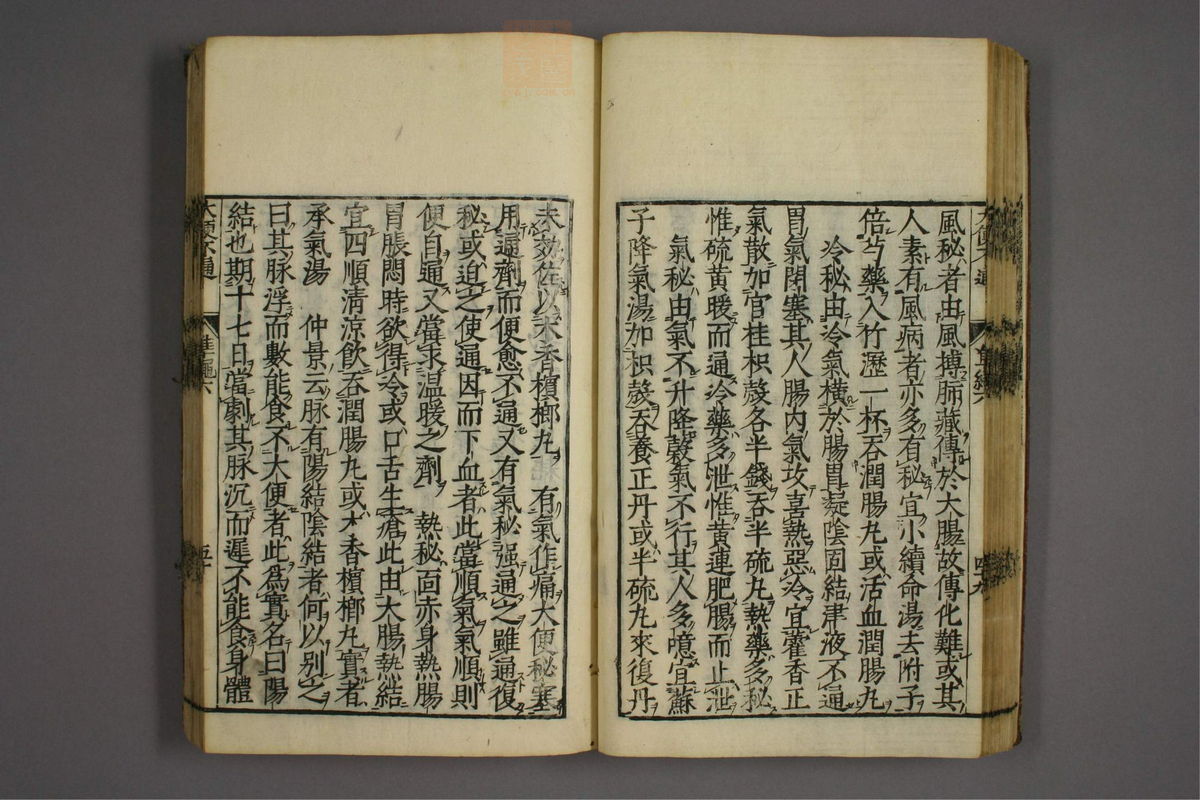 風秘者由風搏肺藏傳於大腸故傳化難或其
人素有風病者亦多有秘宜小續命湯去附子
倍芍藥入竹瀝一杯吞潤腸丸或活血潤腸丸
冷秘由冷氣橫於腸胃凝陰固結津液不通
胃氣閉塞其人腸内氣攻喜熱惡冷宜藿香正
氣散加官桂枳殼各半錢吞半硫丸熱藥多秘
惟硫黄暖而通冷藥多泄惟黄連肥腸而止泄
氣秘由氣不升降穀氣不行其人多噫宜蘇
子降氣湯加枳殼吞養正丹或半硫丸來復丹
未効佐以木香檳榔丸 有氣作痛大便秘塞
用通劑而便愈不通又有氣秘强通之雖通復
秘或迫之使通因而下血者此當順氣氣順則
便自通又當求温暖之劑 熱秘面赤身熱腸
胃脹悶時欲得冷或口舌生瘡此由大腸熱結
宜四順清凉飲吞潤腸丸或木香檳榔丸實者
承氣湯 仲景云脉有陽結陰結者何以别之
曰其脉浮而數能食不大便者此為實名曰陽
結也期十七日當劇其脉沉而遲不能食身體
大便不通